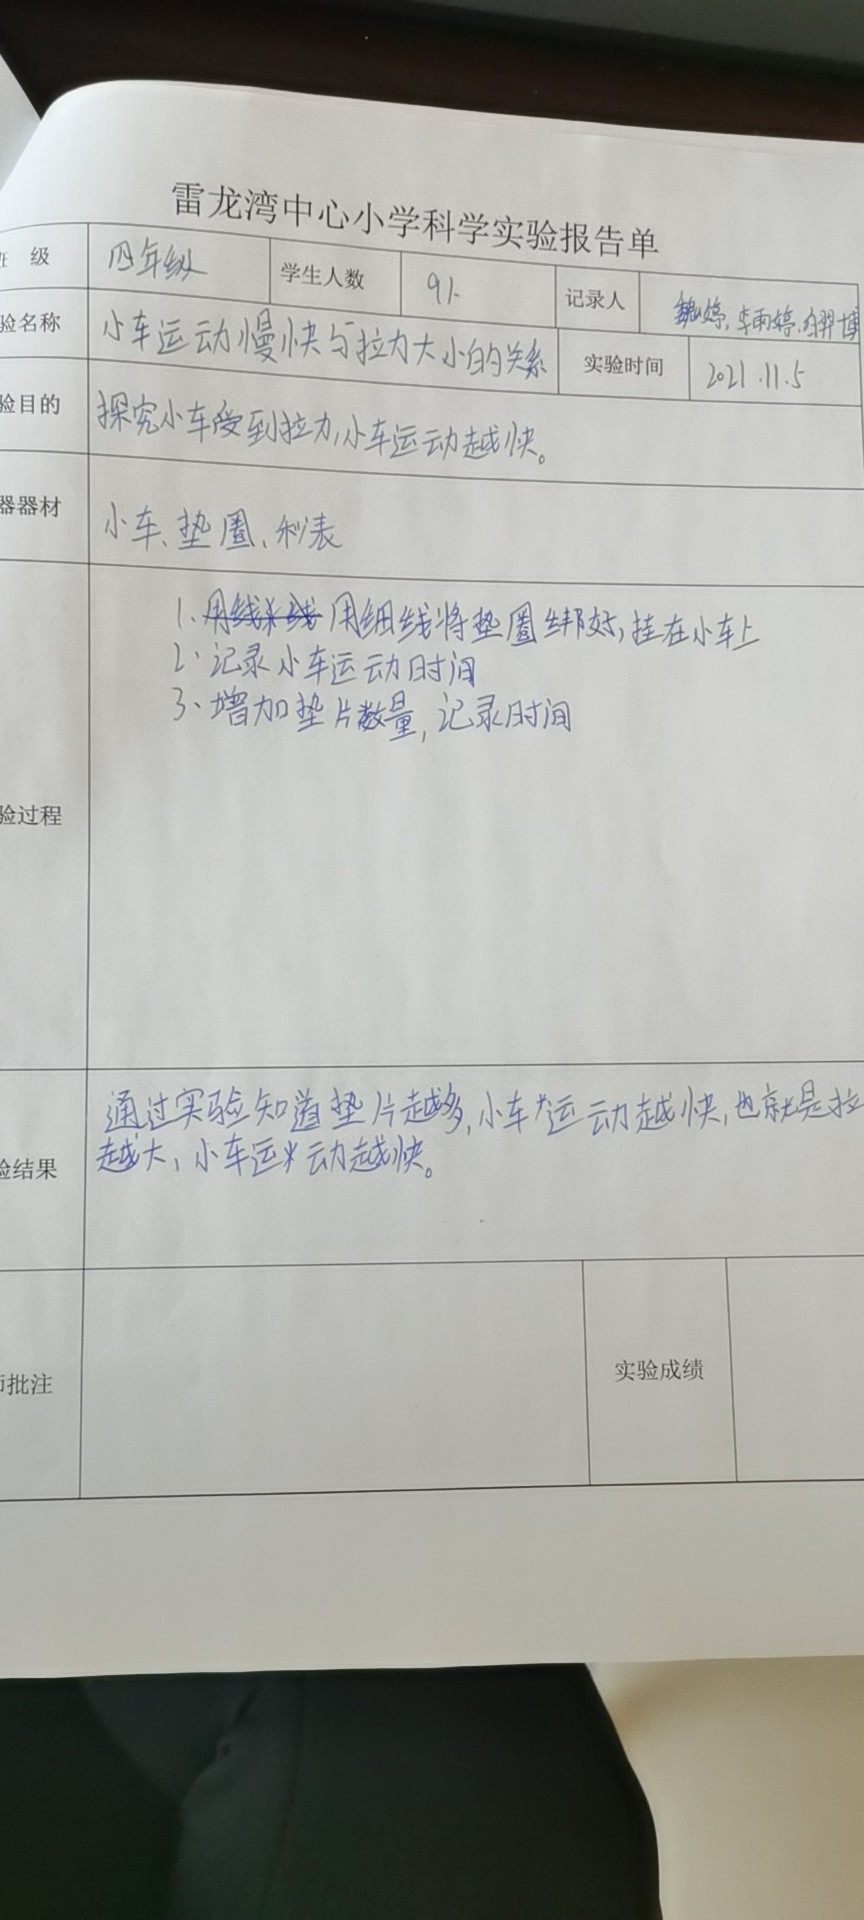 雷龙湾中心小学科学实验报告单
级 四年级 学生人数 9人 记录人 魏婷,李雨婷,
验名称 小车运动慢快与拉力大小的关系 实验时间 2021.11.5
验目的 探究小车受到拉力,小车运动越快。
器器材 小车、垫圈、秒表
1. 用细线将垫圈绑好,挂在小车上
2、记录小车运动时间
3、增加垫片数量,记录时间
验过程
通过实验知道垫片越多,小车运动越快,也就是拉
越大,小车运动越快。
验结果
批注 实验成绩